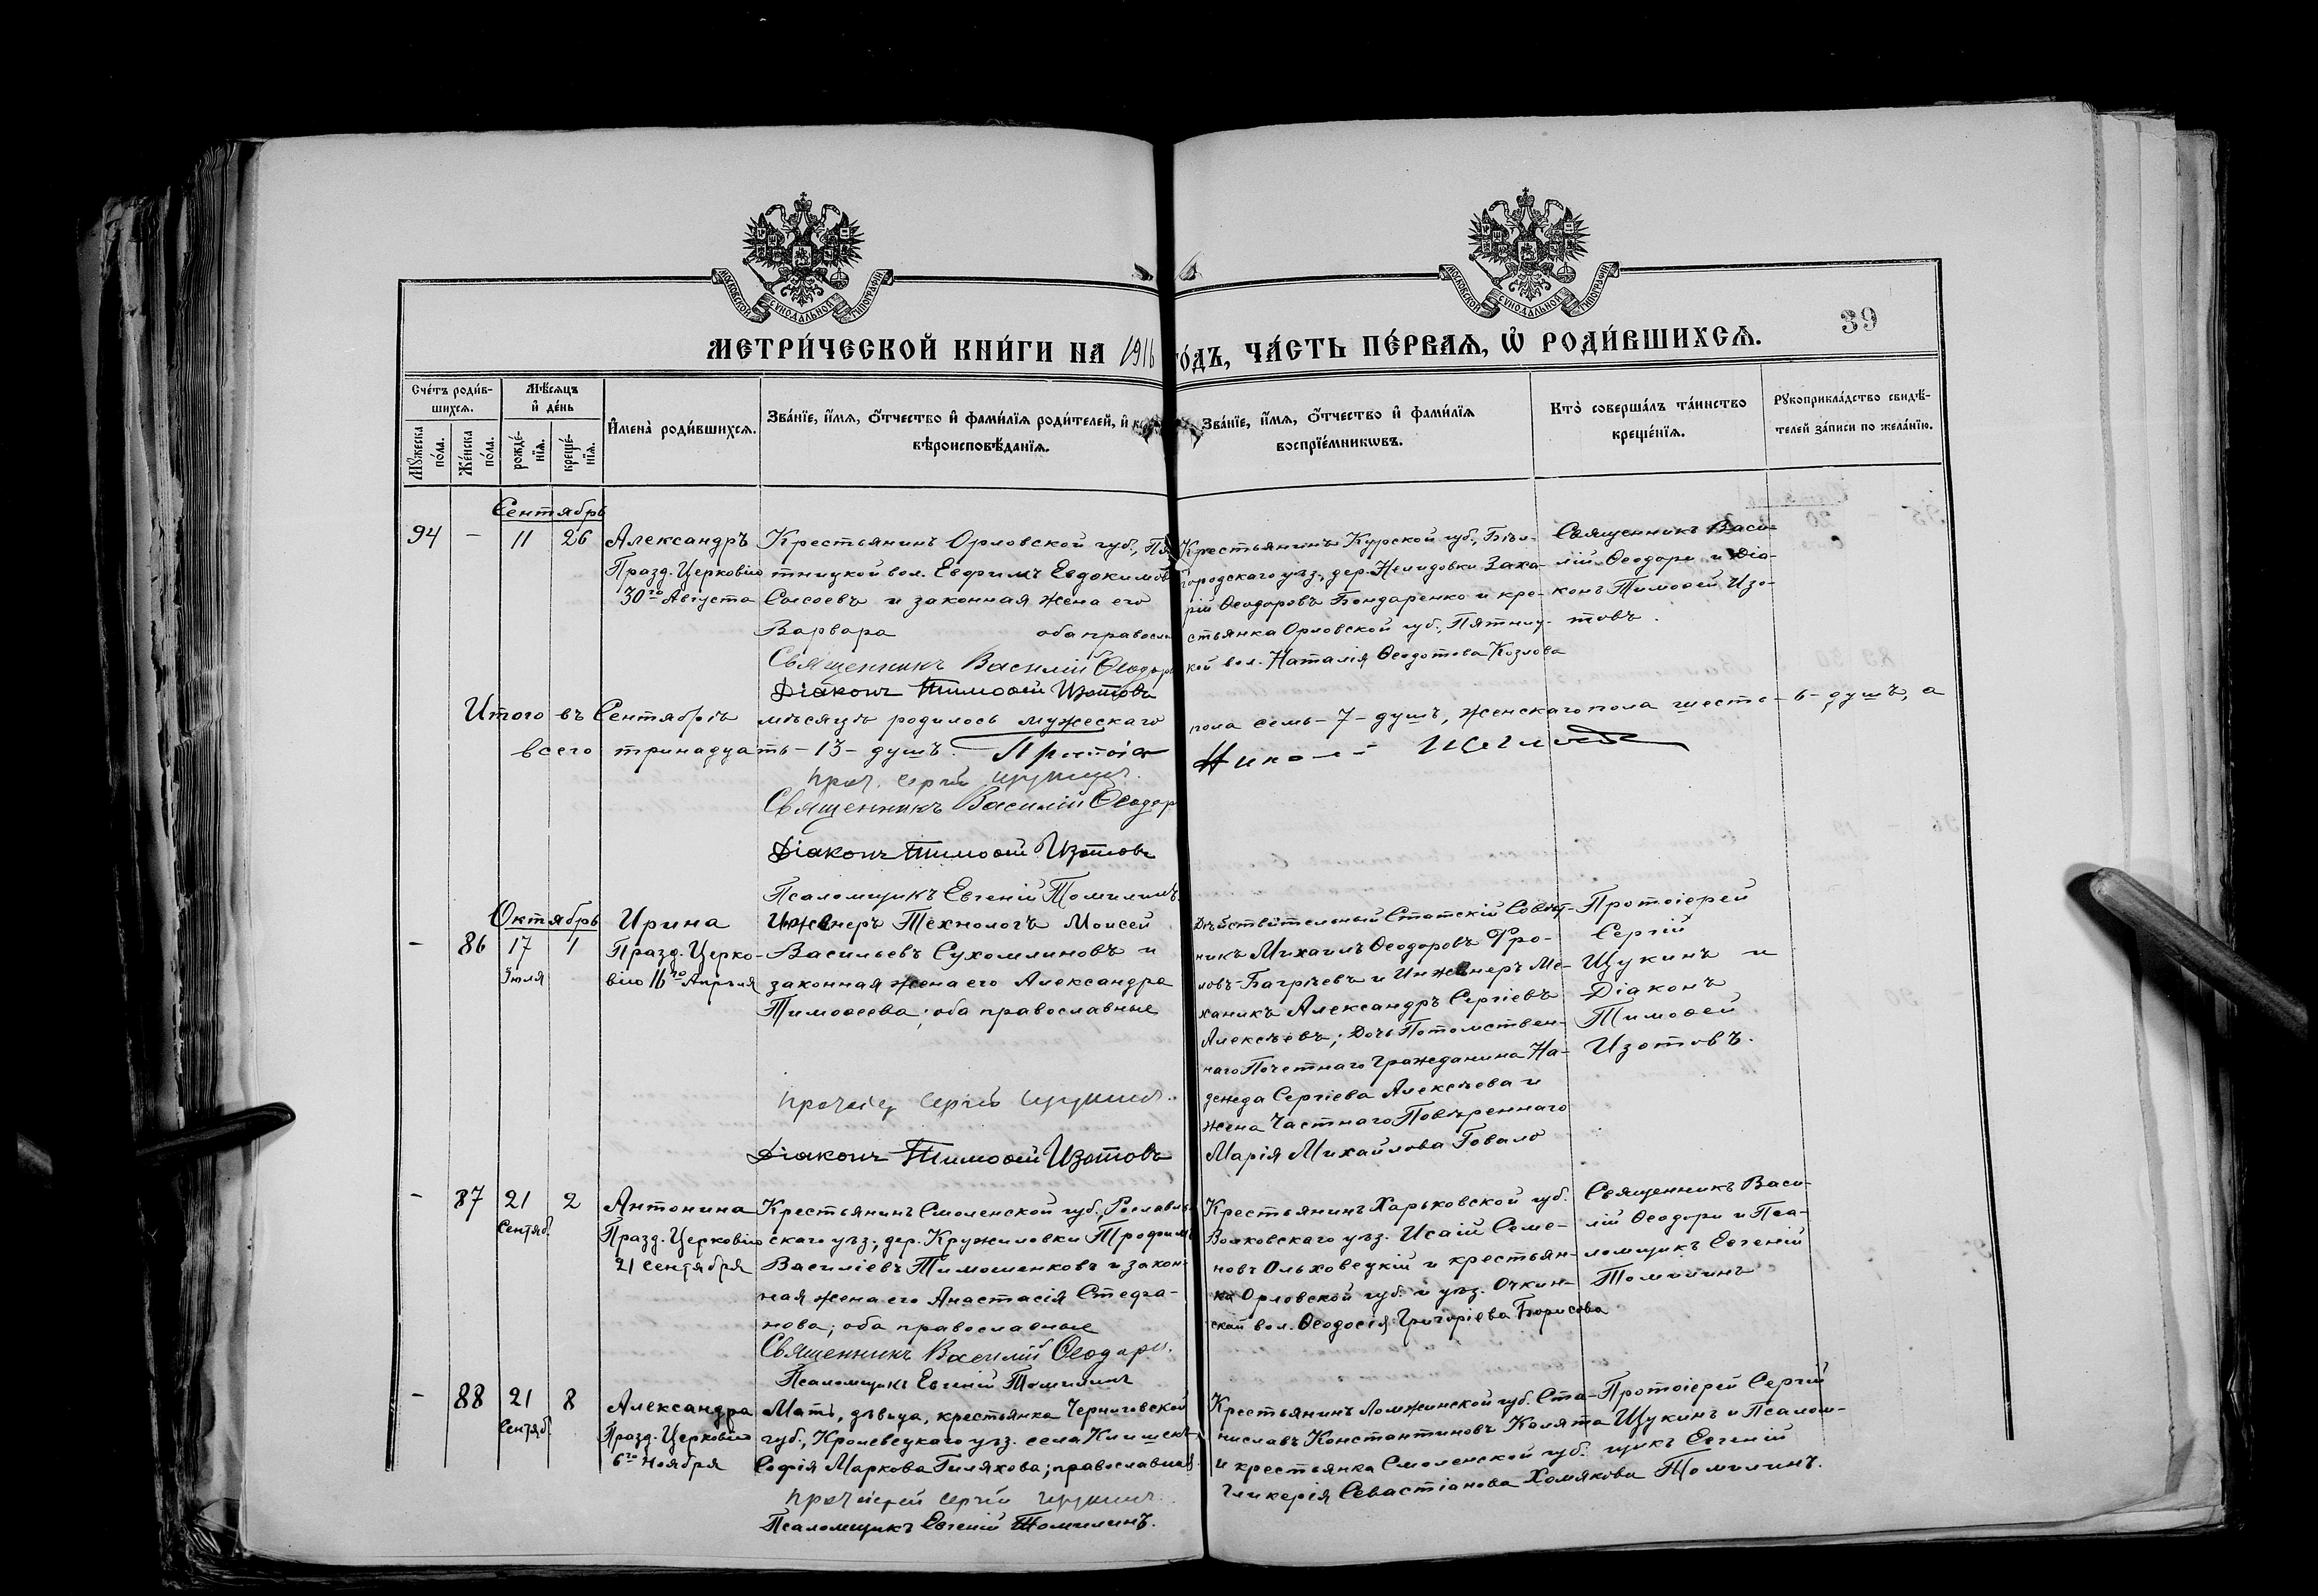 МОСКОВСКОЙ СѴНОДАЛЬНОЙ ТИПОГРАФІИ
МОСКОВСКОЙ СѴНОДАЛЬНОЙ ТИПОГРАФІИ
39
МЕТРИ́ЧЕСКОЙ КНИ́ГИ НА 1916
ГО́ДЪ, ЧА́СТЬ ПЕ́РВАѦ, Ѡ҆ РОДИ́ВШИХСѦ.
Сче́тъ роди́в-
шихсѧ.
Мѣ́сѧцъ
и҆ де́нь
Мꙋ́жеска
по́ла.
Же́нска
по́ла.
рожде́-
нїѧ.
креще́-
нїѧ.
И҆мена̀ роди́вшихсѧ.
Зва́нїе, и҆́мѧ, ѻ҆́тчество и҆ фами́лїѧ роди́телей, и҆
вѣроисповѣ́данїѧ.
Зва́нїе, и҆́мѧ, ѻ҆́тчество и҆ фами́лїѧ
воспрїе́мникѡвъ.
Кто̀ соверша́лъ та́инство
креще́нїѧ.
Рꙋкоприкла́дство свидѣ́-
телей за́писи по жела́нїю.
Сентябрь
94 - 11 26
Александръ
Празд. Церковію
30го Августа
Крестьянинъ Орловской губ., Пя
тницкой вол. Евфимъ Евдокимовъ
Сысоевъ и законная жена его
Варвара оба правосл
Священникъ Василій Ѳеодори
Діаконъ Тимоѳей Изотовъ
Крестьянинъ Курской губ., Бѣл-
городскаго уѣз., дер. Нелидовки Заха-
рій Ѳеодоровъ Бондаренко и кре-
стьянка Орловской губ., Пятниц-
кой вол. Наталія Ѳеодотова Козлова
Священникъ Васи-
лій Ѳеодори и Діа-
конъ Тимоѳей Изо-
товъ.
Итого въ Сентябрѣ мѣсяцѣ родилось мужескаго пола семь-7-душъ, женскаго пола шесть-6-душъ, а
всего тринадцать-13-душъ.
Священникъ Василій Ѳеодори
Діаконъ Тимоѳей Изотовъ
Псаломщикъ Евгеній Томилинъ.
Октябрь
- 86 17 1
Іюля
Ирина
Празд. Церко-
вію 16го Апрѣля
Инженеръ Технологъ Моисей
Васильевъ Сухомлиновъ и
законная жена его Александра
Тимоѳеева; оба православные
Протоіер Сергій Щукинъ.
Діаконъ Тимоѳей Изотовъ
Дѣйствительный Статскій Совѣт-
никъ Михаилъ Ѳеодоровъ Фро-
ловъ-Багрѣевъ и Инженеръ Ме-
ханикъ Александръ Сергіевъ
Алексѣевъ; Дочь Потомствен-
наго Почетнаго Гражданина На-
дежда Сергіева Алексѣева и
жена Частнаго Повѣреннаго
Марія Михайлова Говало
Протоіерей
Сергій
Щукинъ и
Діаконъ
Тимоѳей
Изотовъ.
- 87 21 2
Сентяб.
Антонина
Празд. Церковію
21 сентября
Крестьянинъ Смоленской губ., Рославль-
скаго уѣз., дер. Кружиловки Трофимъ
Василіевъ Тимошенковъ и закон-
ная жена его Анастасія Стефа-
нова; оба православные
Священникъ Василій Ѳеодори.
Псаломщикъ Евгеній Томилинъ
Крестьянинъ Харьковской губ.
Волковскаго уѣз. Исаій Семе-
новъ Ольховецкій и крестьян-
ка Орловской губ. и уѣз. Очкин-
ской вол. Ѳеодосія Григоріева Борисова
Священникъ Васи-
лій Ѳеодори и Пса-
ломщикъ Евгеній
Томилинъ
- 88 21 8
Сентяб.
Александра
Празд. Церковію
6го Ноября
Мать, дѣвица, крестьянка Черниговской
губ., Кролевецкаго уѣз. села
Софія Маркова Гиляхова; православная
Протоіерей Сергій Щукинъ
Псаломщикъ Евгеній Томилинъ.
Крестьянинъ Ломжинской губ. Ста-
ниславъ Константиновъ Колята
и крестьянка Смоленской губ.
Гликерія Севастіанова Хомякова
Протоіерей Сергій
Щукинъ и Псалом-
щикъ Евгеній
Томилинъ.